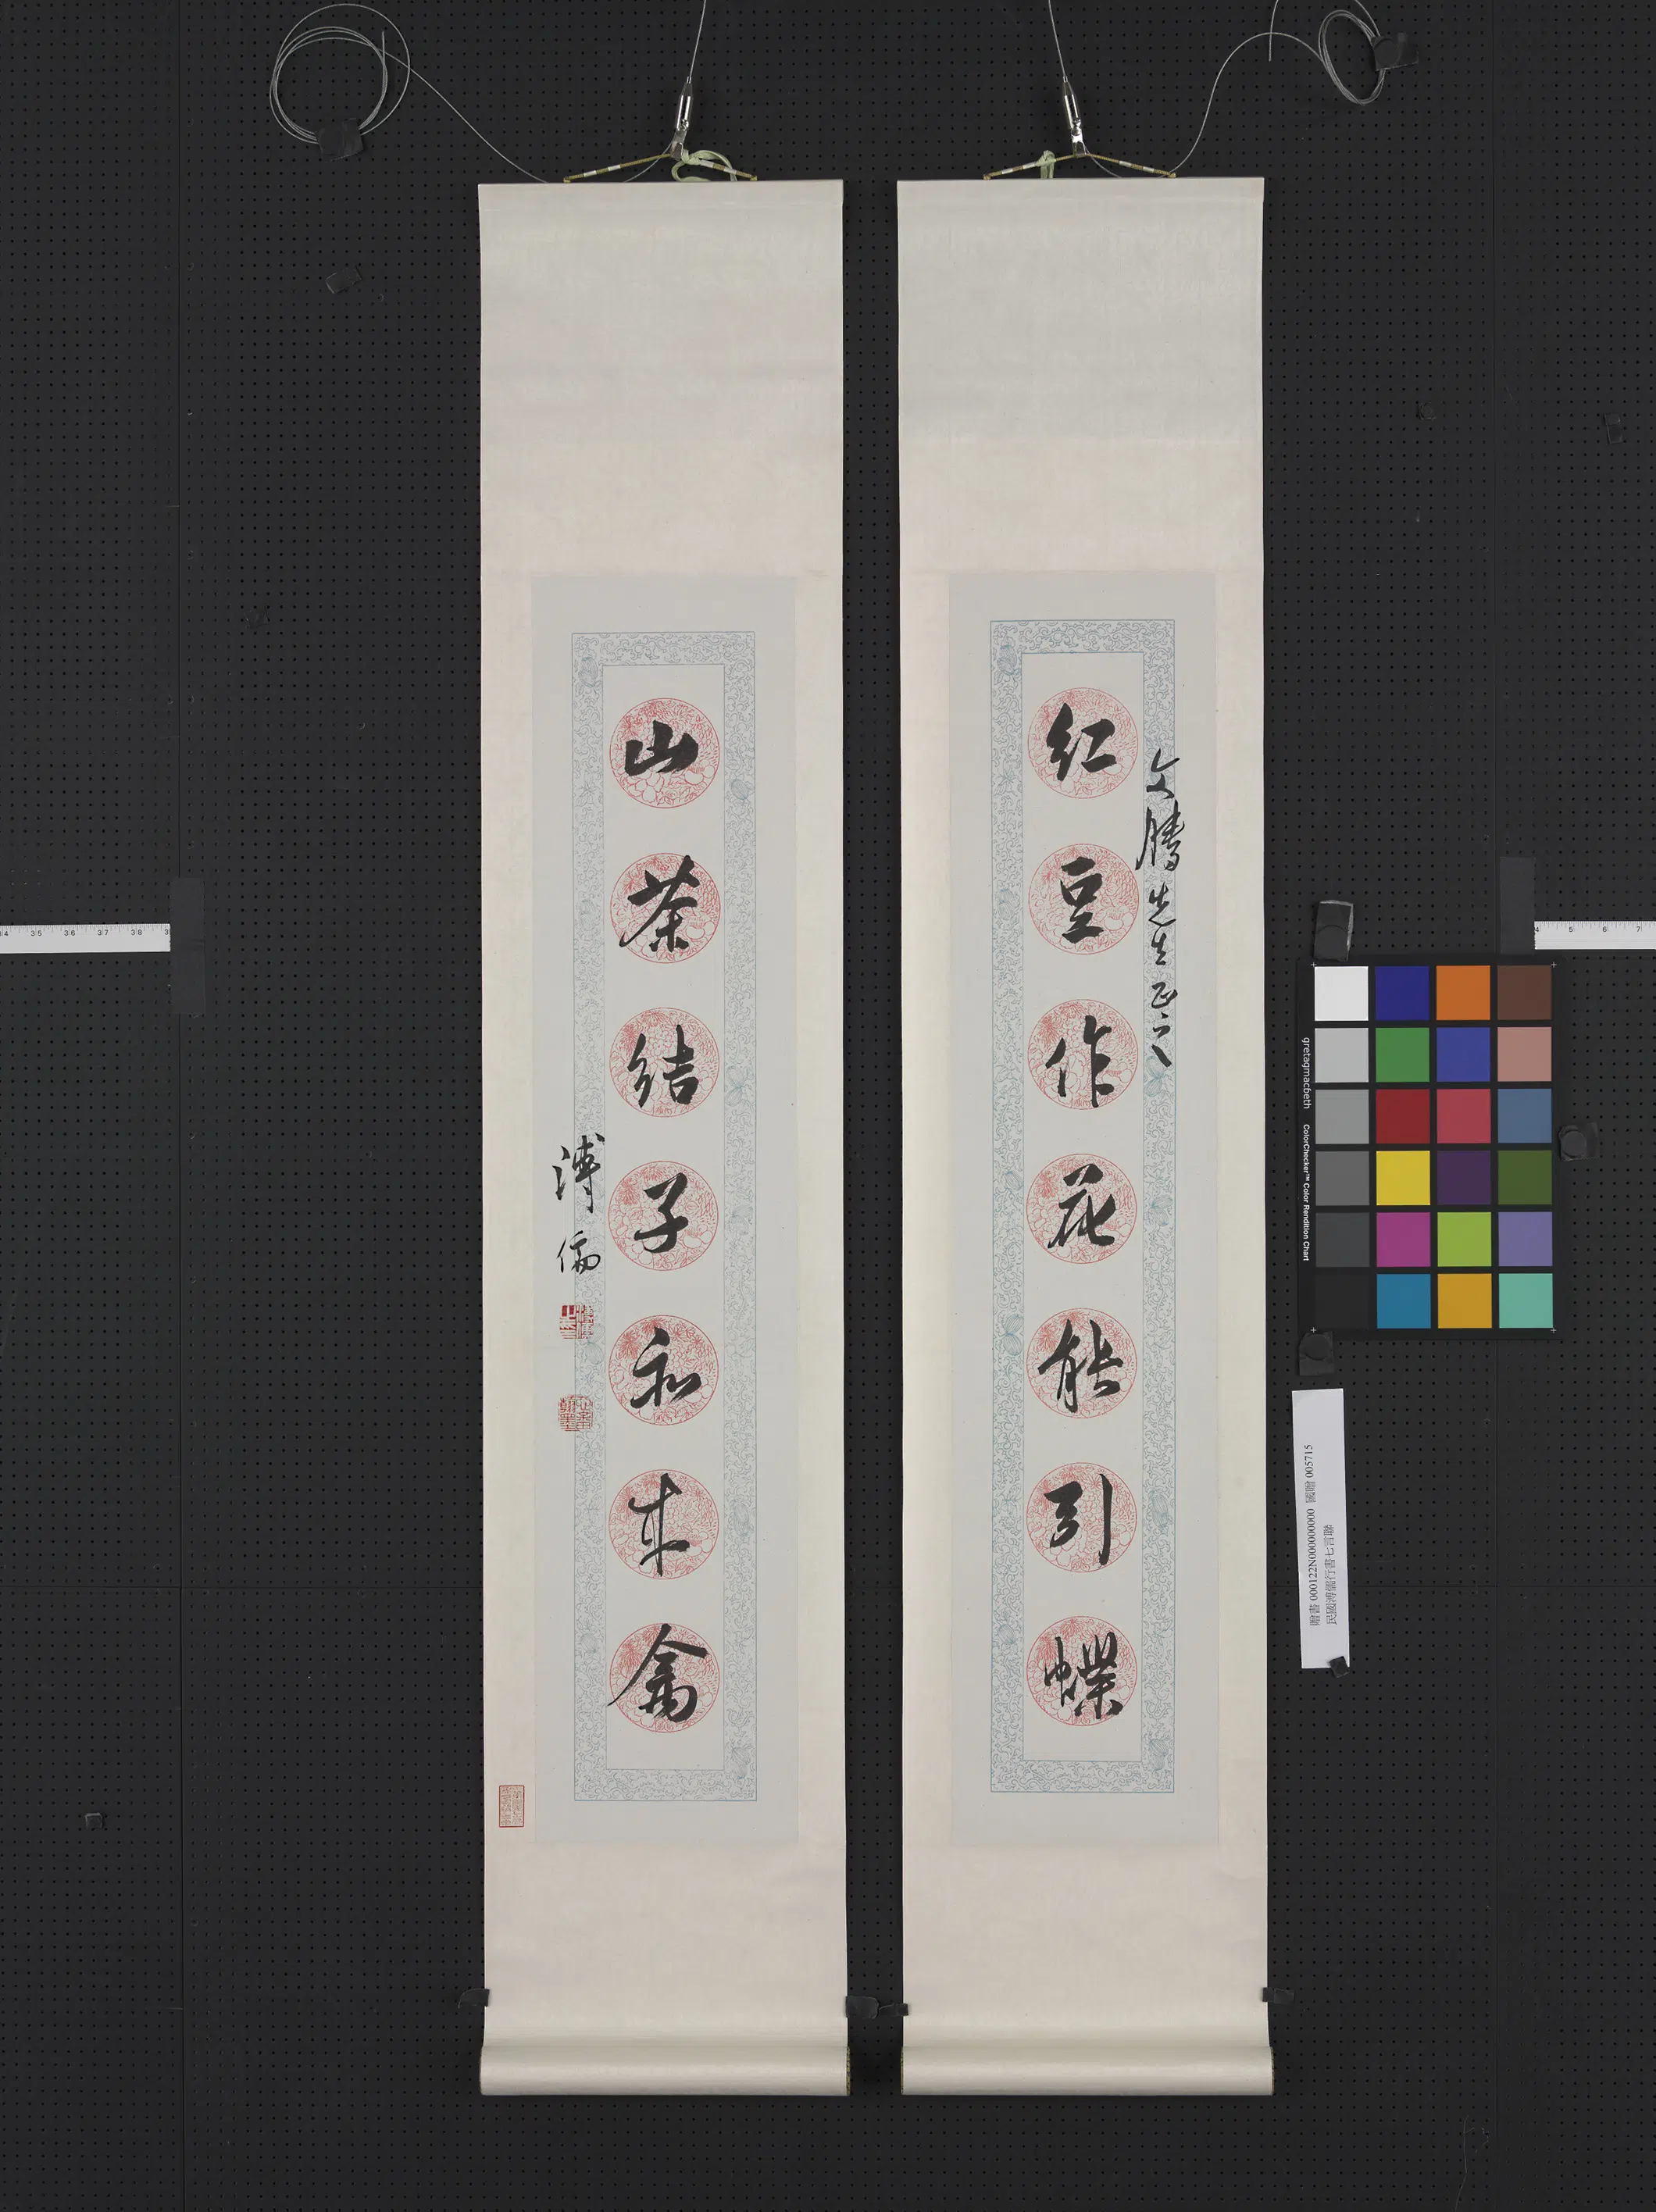 紅豆作花能引蝶
文騰先生正之
山茶結子和來禽
溥儒
贈書 000122N000000000 國贈 005715
民國溥儒行書七言聯
gretagmacbeth
ColorChecker™ Color Rendition Chart
35 36 37 38
4 5 6 7